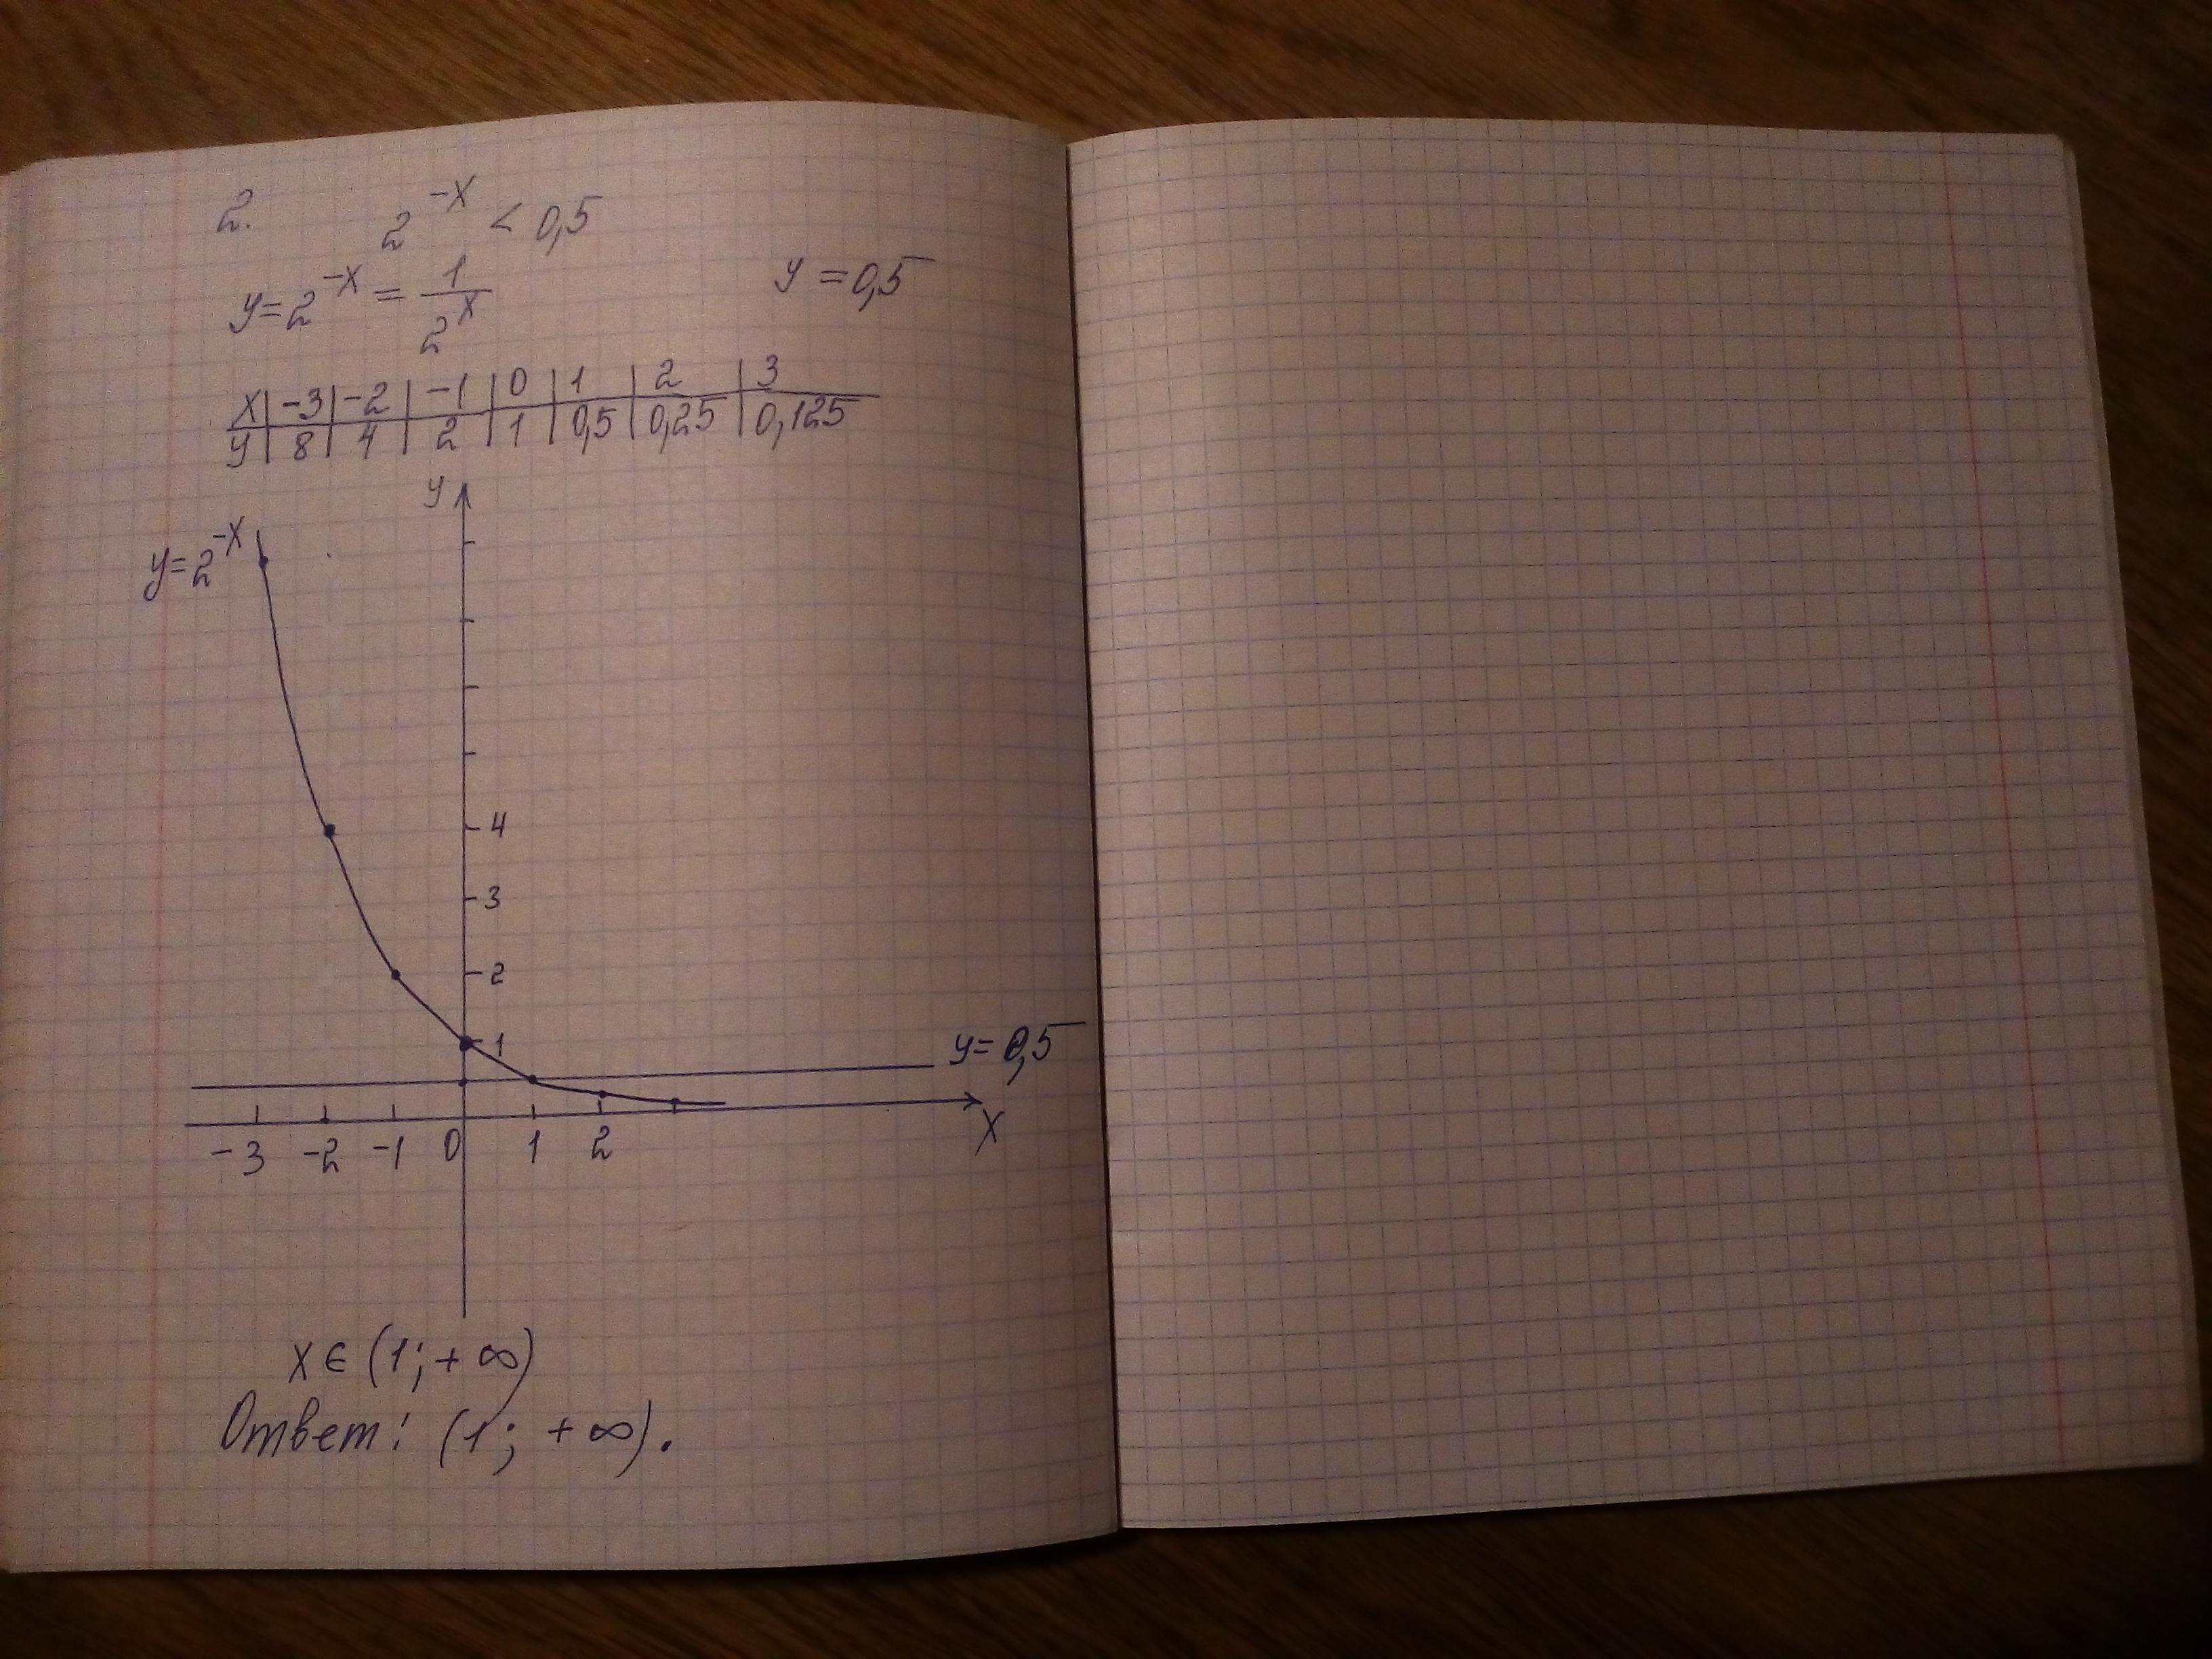 2. 2^-x < 0,5
y=2^-x = 1/2^x y = 0,5
x | -3 | -2 | -1 | 0 | 1 | 2 | 3
y | 8 | 4 | 2 | 1 | 0,5 | 0,25 | 0,125
y
y=2^-x
4
3
2
1
y=0,5
-3 -2 -1 0 1 2 x
x ∈ (1; +∞)
Ответ: (1; +∞).